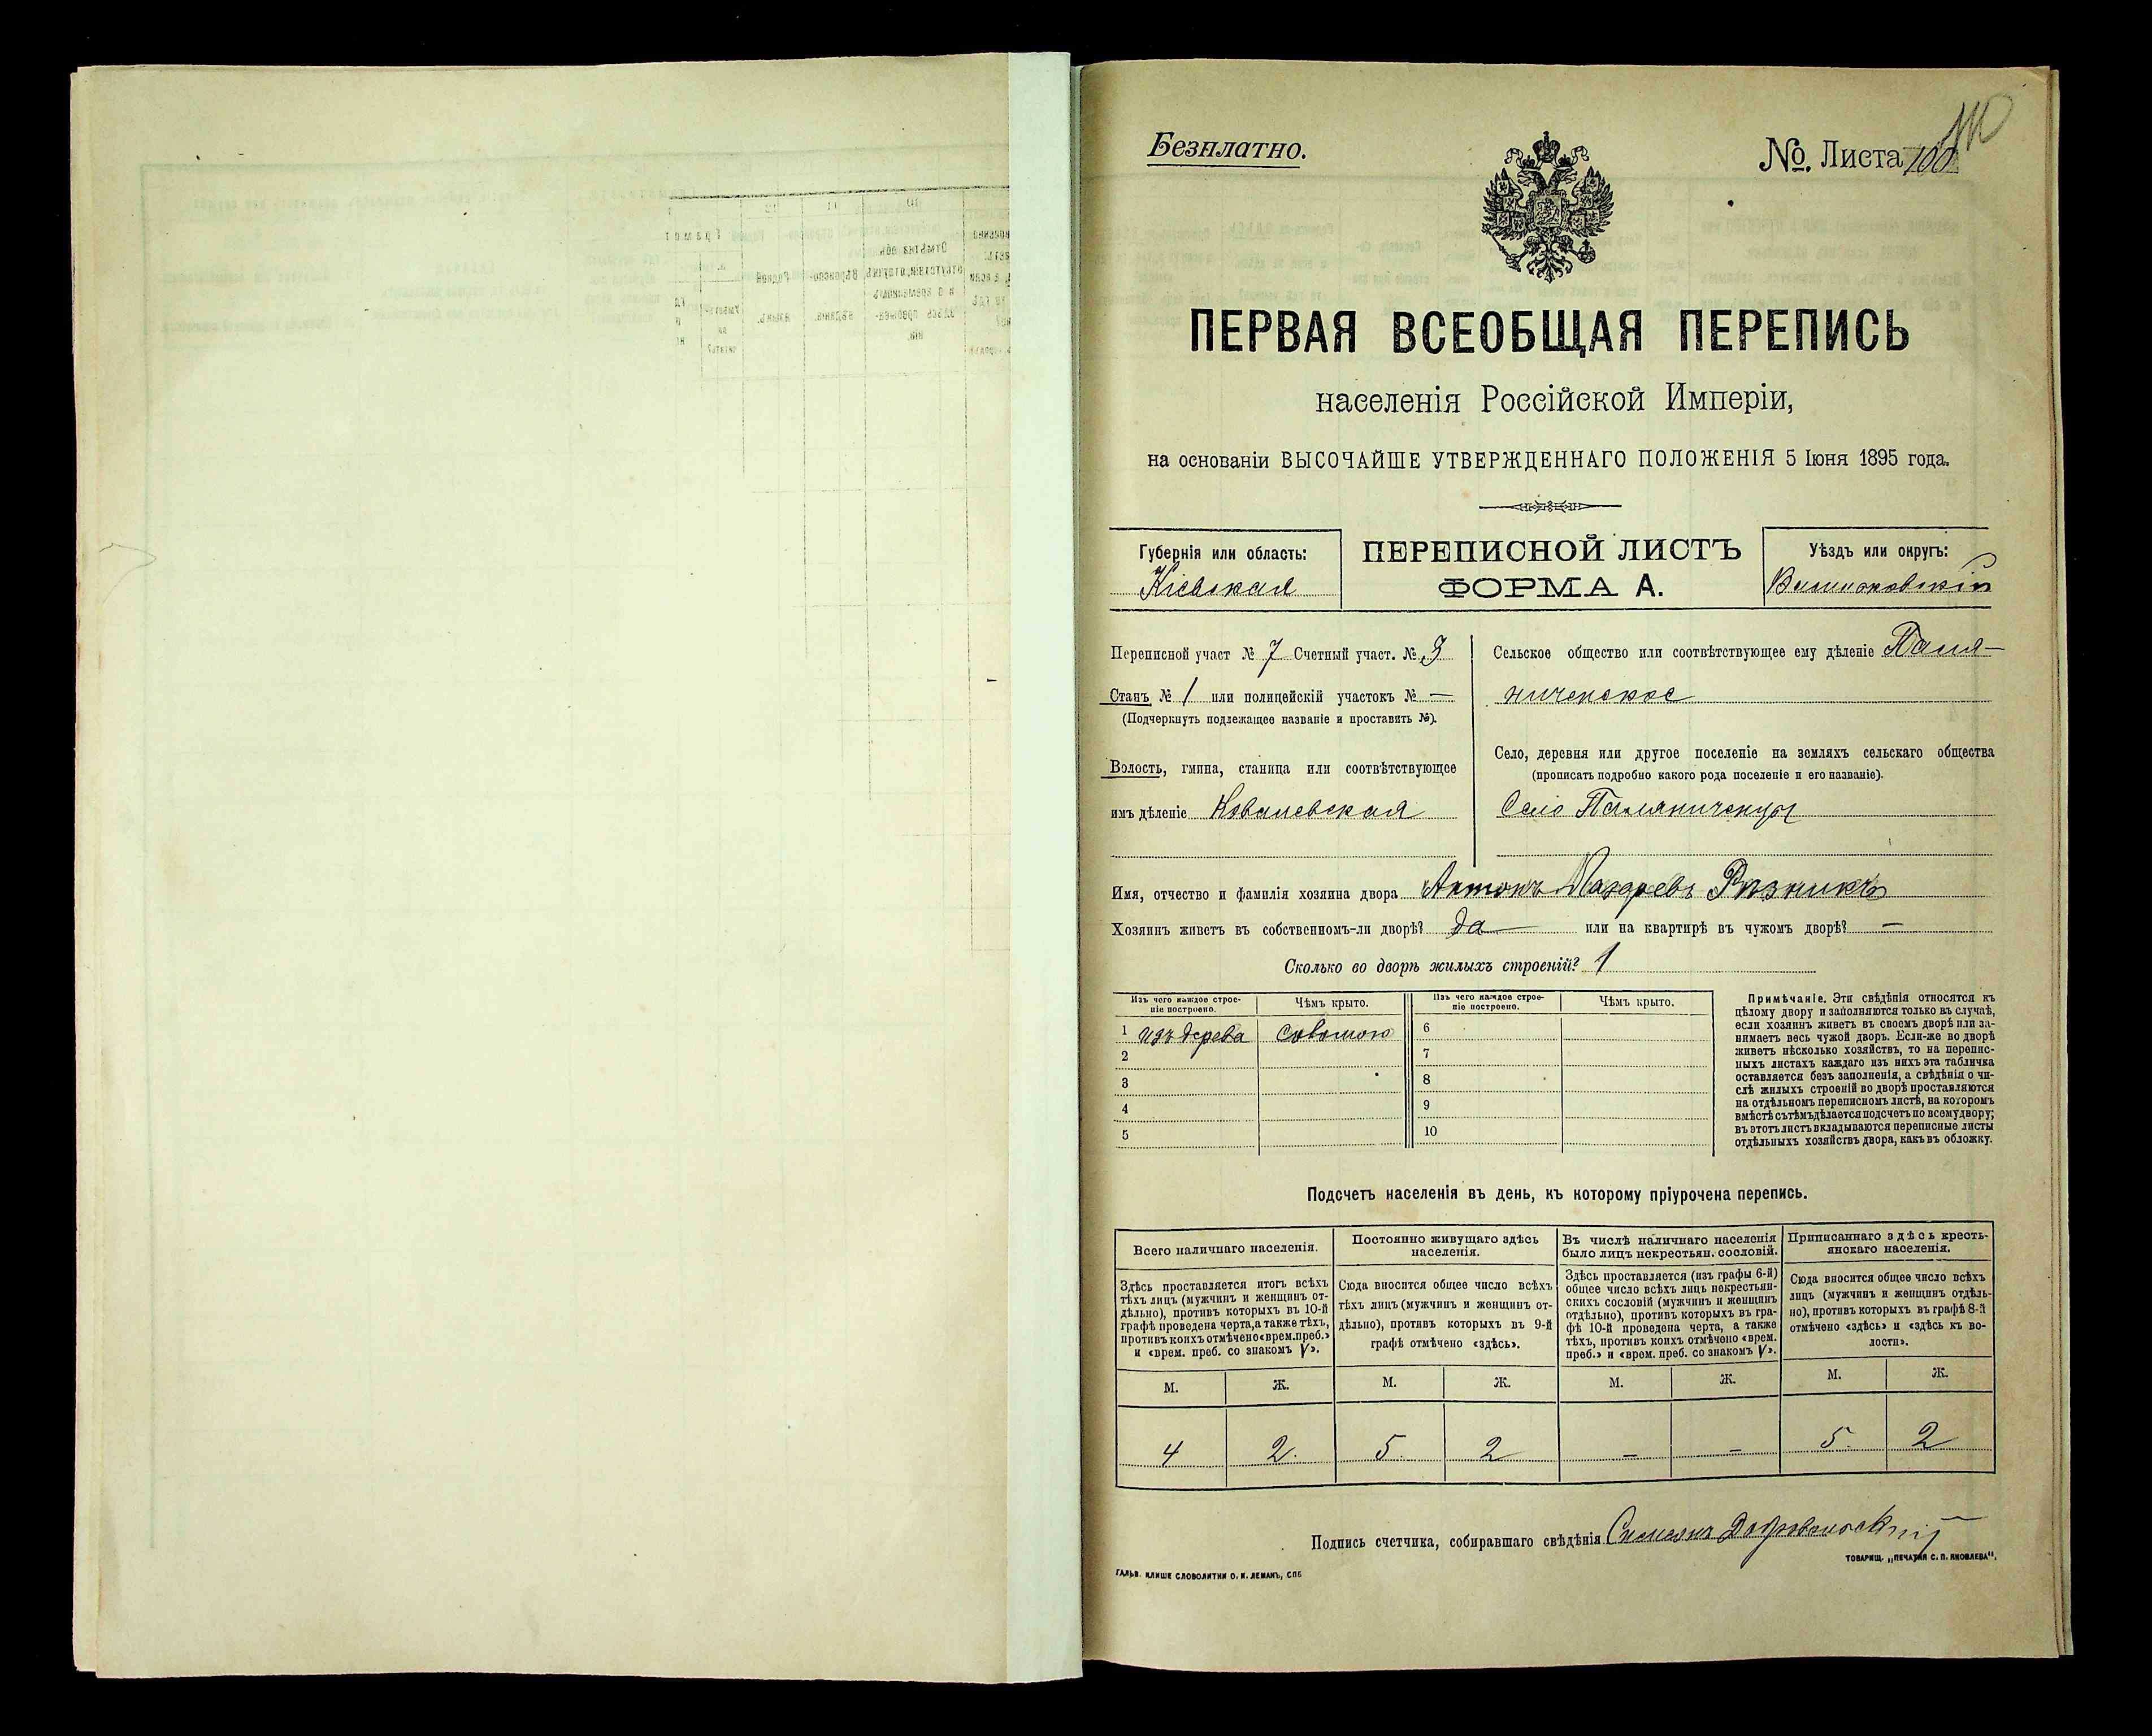 Безплатно.
№. Листа 100
ПЕРВАЯ ВСЕОБЩАЯ ПЕРЕПИСЬ
населенія Россійской Имперіи,
на основаніи ВЫСОЧАЙШЕ УТВЕРЖДЕННАГО ПОЛОЖЕНІЯ 5 Іюня 1895 года.
Губернія или область:
Кіевская
ПЕРЕПИСНОЙ ЛИСТЪ
ФОРМА А.
Уѣздъ или округъ:
Васильковскій
Переписной участ № 7 Счетный участ. № 3
Станъ № 1 или полицейскій участокъ № —
(Подчеркнуть подлежащее названіе и проставить №).
Волость, гмина, станица или соотвѣтствующее
имъ дѣленіе Ковалевская
Сельское общество или соотвѣтствующее ему дѣленіе Паля-
ниченское
Село, деревня или другое поселеніе на земляхъ сельскаго общества
(прописать подробно какого рода поселеніе и его названіе).
Село Паляниченцы
Имя, отчество и фамилія хозяина двора Антонъ Назаревъ Рѣзникъ
Хозяинъ живетъ въ собственномъ-ли дворѣ? Да или на квартирѣ въ чужомъ дворѣ? —
Сколько во дворѣ жилыхъ строеній? 1
Изъ чего каждое строе-
ніе построено.
Чѣмъ крыто.
Изъ чего каждое строе-
ніе построено.
Чѣмъ крыто.
1 изъ дерева соломою 6
2 7
3 8
4 9
5 10
Примѣчаніе. Эти свѣдѣнія относятся къ
цѣлому двору и заполняются только въ случаѣ,
если хозяинъ живетъ въ своемъ дворѣ или за-
нимаетъ весь чужой дворъ. Если-же во дворѣ
живетъ нѣсколько хозяйствъ, то на перепис-
ныхъ листахъ каждаго изъ нихъ эта табличка
оставляется безъ заполненія, а свѣдѣнія о чи-
слѣ жилыхъ строеній во дворѣ проставляются
на отдѣльномъ переписномъ листѣ, на которомъ
вмѣстѣ съ тѣмъ дѣлается подсчетъ по всему двору;
въ этотъ листъ вкладываются переписные листы
отдѣльныхъ хозяйствъ двора, какъ въ обложку.
Подсчетъ населенія въ день, къ которому пріурочена перепись.
Всего наличнаго населенія.
Здѣсь проставляется итогъ всѣхъ
тѣхъ лицъ (мужчинъ и женщинъ от-
дѣльно), противъ которыхъ въ 10-й
графѣ проведена черта, а также тѣхъ,
противъ коихъ отмѣчено «врем. преб.»
и «врем. преб. со знакомъ V».
Постоянно живущаго здѣсь
населенія.
Сюда вносится общее число всѣхъ
тѣхъ лицъ (мужчинъ и женщинъ от-
дѣльно), противъ которыхъ въ 9-й
графѣ отмѣчено «здѣсь».
Въ числѣ наличнаго населенія
было лицъ некрестьян. сословій.
Здѣсь проставляется (изъ графы 6-й)
общее число всѣхъ лицъ некрестьян-
скихъ сословій (мужчинъ и женщинъ
отдѣльно), противъ которыхъ въ гра-
фѣ 10-й проведена черта, а также
тѣхъ, противъ коихъ отмѣчено «врем.
преб.» и «врем. преб. со знакомъ V».
Приписаннаго здѣсь кресть-
янскаго населенія.
Сюда вносится общее число всѣхъ
лицъ (мужчинъ и женщинъ отдѣль-
но), противъ которыхъ въ графѣ 8-й
отмѣчено «здѣсь» и «здѣсь къ во-
лости».
М. Ж. М. Ж. М. Ж. М. Ж.
4 2 5 2 — — 5 2
Подпись счетчика, собиравшаго свѣдѣнія Симеонъ Добровольскій
ТОВАРИЩ. „ПЕЧАТНЯ С. П. ЯКОВЛЕВА".
ГАЛЬВ. КЛИШЕ СЛОВОЛИТНИ О. И. ЛЕМАНЪ, СПБ